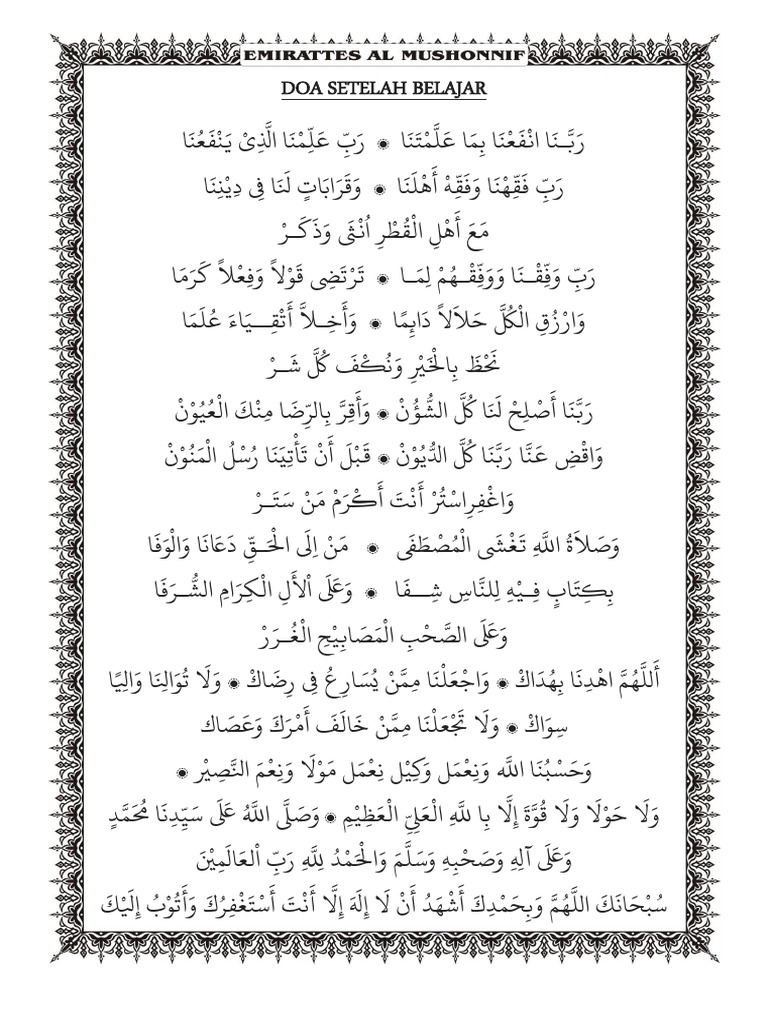 EMIRATTES AL MUSHONNIF
DOA SETELAH BELAJAR
رَبَّنَا انْفَعْنَا بِمَا عَلَّمْتَنَا ۞ رَبِّ عَلِّمْنَا الَّذِيْ يَنْفَعُنَا
رَبِّ فَقِّهْنَا وَفَقِّهْ أَهْلَنَا ۞ وَقَرَابَاتٍ لَنَا فِى دِيْنِنَا
مَعَ أَهْلِ الْقُطْرِ اُنْثَى وَذَكَرْ
رَبِّ وَفِّقْنَا وَوَفِّقْهُمْ لِمَا ۞ تَرْتَضِى قَوْلاً وَفِعْلاً كَرَمَا
وَارْزُقِ الْكُلَّ حَلاَلاً دَائِمًا ۞ وَأَخِلاَّ أَتْقِيَاءَ عُلَمَا
نَحْظَ بِالْخَيْرِ وَنُكْفَ كُلَّ شَرْ
رَبَّنَا أَصْلِحْ لَنَا كُلَّ الشُّؤُنْ ۞ وَأَقِرَّ بِالرِّضَا مِنْكَ الْعُيُوْنْ
وَاقْضِ عَنَّا رَبَّنَا كُلَّ الدُّيُوْنْ ۞ قَبْلَ أَنْ تَأْتِيَنَا رُسْلُ الْمَنُوْنْ
وَاغْفِرِاسْتُرْ أَنْتَ أَكْرَمْ مَنْ سَتَرْ
وَصَلَاةُ اللَّهِ تَغْشَى الْمُصْطَفَى ۞ مَنْ اِلَى الْحَقِّ دَعَانَا وَالْوَفَا
بِكِتَابٍ فِيْهِ لِلنَّاسِ شِفَا ۞ وَعَلَى اْلأَلِ الْكِرَامِ الشُّرَفَا
وَعَلَى الصَّحْبِ الْمَصَابِيْحِ الْغُرَرْ
أَللَّهُمَّ اهْدِنَا بِهُدَاكْ ۞ وَاجْعَلْنَا مِمَّنْ يُسَارِعُ فِى رِضَاكْ ۞ وَلَا تُوَالِنَا وَالِيًا
سِوَاكْ ۞ وَلَا تَجْعَلْنَا مِمَّنْ خَالَفَ أَمْرَكَ وَعَصَاك
وَحَسْبُنَا اللَّه وَنِعْمَل وَكِيْل نِعْمَل مَوْلَا وَنِعْمَ النَّصِيْر ۞
وَلَا حَوْلَا وَلَا قُوَّةَ إِلَّا بِا للَّهِ الْعَلِيِّ الْعَظِيْمِ ۞ وَصَلَّى اللَّهُ عَلَى سَيِّدِنَا مُحَمَّدٍ
وَعَلَى آلِهِ وَصَحْبِهِ وَسَلَّمَ وَالْحَمْدُ لِلَّهِ رَبِّ اْلعَالَمِيْنَ
سُبْحَانَكَ اللَّهُمَّ وَبِحَمْدِكَ أَشْهَدُ أَنْ لَا إِلَهَ إِلَّا أَنْتَ أَسْتَغْفِرُكَ وَأَتُوْبُ إِلَيْكَ